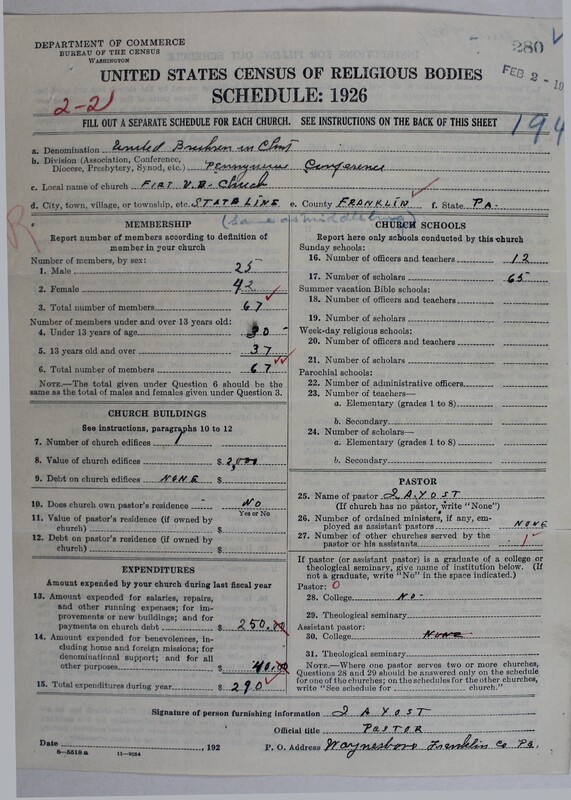 DEPARTMENT OF COMMERCE
BUREAU OF THE CENSUS
WASHINGTON
280
FEB 2 - 19
UNITED STATES CENSUS OF RELIGIOUS BODIES
SCHEDULE: 1926
2-21
FILL OUT A SEPARATE SCHEDULE FOR EACH CHURCH. SEE INSTRUCTIONS ON THE BACK OF THIS SHEET
194
a. Denomination United Brethren in Christ
b. Division (Association, Conference,
Diocese, Presbytery, Synod, etc.) Conference
c. Local name of church First U.B. Church
d. City, town, village, or township, etc. STATE LINE e. County FRANKLIN f. State PA.
(Same as Middleburg)
R
MEMBERSHIP
Report number of members according to definition of
member in your church
Number of members, by sex:
1. Male 25
2. Female 42
3. Total number of members 67
Number of members under and over 13 years old:
4. Under 13 years of age 30
5. 13 years old and over 37
6. Total number of members 67
NOTE.—The total given under Question 6 should be the
same as the total of males and females given under Question 3.
CHURCH BUILDINGS
See instructions, paragraphs 10 to 12
7. Number of church edifices 1
8. Value of church edifices $ 2,000
9. Debt on church edifices NONE $
10. Does church own pastor's residence NO
Yes or No
11. Value of pastor's residence (if owned by
church) $
12. Debt on pastor's residence (if owned by
church) $
EXPENDITURES
Amount expended by your church during last fiscal year
13. Amount expended for salaries, repairs,
and other running expenses; for im-
provements or new buildings; and for
payments on church debt $ 250.00
14. Amount expended for benevolences, in-
cluding home and foreign missions; for
denominational support; and for all
other purposes $ 40.00
15. Total expenditures during year $ 290
CHURCH SCHOOLS
Report here only schools conducted by this church
Sunday schools:
16. Number of officers and teachers 12
17. Number of scholars 65
Summer vacation Bible schools:
18. Number of officers and teachers
19. Number of scholars
Week-day religious schools:
20. Number of officers and teachers
21. Number of scholars
Parochial schools:
22. Number of administrative officers
23. Number of teachers—
a. Elementary (grades 1 to 8)
b. Secondary
24. Number of scholars—
a. Elementary (grades 1 to 8)
b. Secondary
PASTOR
25. Name of pastor I A YOST
(If church has no pastor, write "None")
26. Number of ordained ministers, if any, em-
ployed as assistant pastors NONE
27. Number of other churches served by the
pastor or his assistants 1
If pastor (or assistant pastor) is a graduate of a college or
theological seminary, give name of institution below. (If
not a graduate, write "No" in the space indicated.)
Pastor: 0
28. College NO
29. Theological seminary
Assistant pastor:
30. College NONE
31. Theological seminary
NOTE.—Where one pastor serves two or more churches,
Questions 28 and 29 should be answered only on the schedule
for one of the churches; on the schedules for the other churches,
write "See schedule for church."
Signature of person furnishing information I A YOST
Official title PASTOR
Date , 192 P. O. Address Waynesboro Franklin Co Pa.
8—5518 a 11—9254